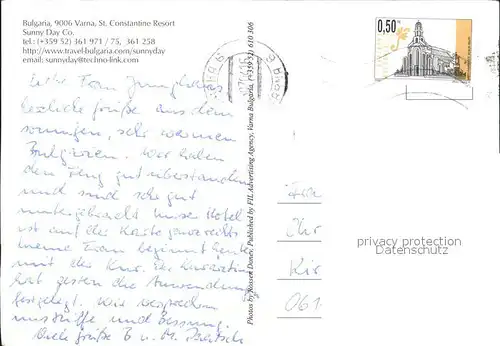 Bulgaria, 9006 Varna, St. Constantine Resort
Sunny Day Co.
tel.: (+359 52) 361 971 / 75, 361 258
http://www.travel-bulgaria.com/sunnyday
email: sunnyday@techno-link.com
0,50
Frau
herzliche Grüße aus dem
sonnigen, sehr warmen
Bulgarien. Wir haben
den Flug gut überstanden
und sind sehr gut
untergebracht. Unser Hotel
ist auf der Karte
meine Frau beginnt heute
mit der Kur. Der Kurarzt
hat gestern die Anwendungen
festgelegt. Wir versprechen
uns Hilfe und Besserung.
Viele Grüße B. u. M.
Photos by Rossen Donev, Published by FIL Advertising Agency, Varna Bulgaria, (+359 52) 610 306
Fra
Kir
061
privacy protection
Datenschutz